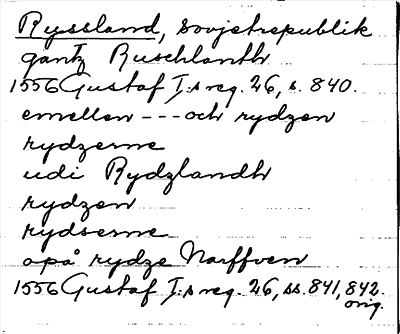 Ryssland, Sovjetrepublik
gantz Ruschlanth
1556 Gustaf I:s reg. 26, s. 840.
emellen --- och rydzen
rydzerne
udi Rydzlandh
rydzen
rydserne
opå rydze Narffven
1556 Gustaf I:s reg. 26, ss. 841, 842.
orig.